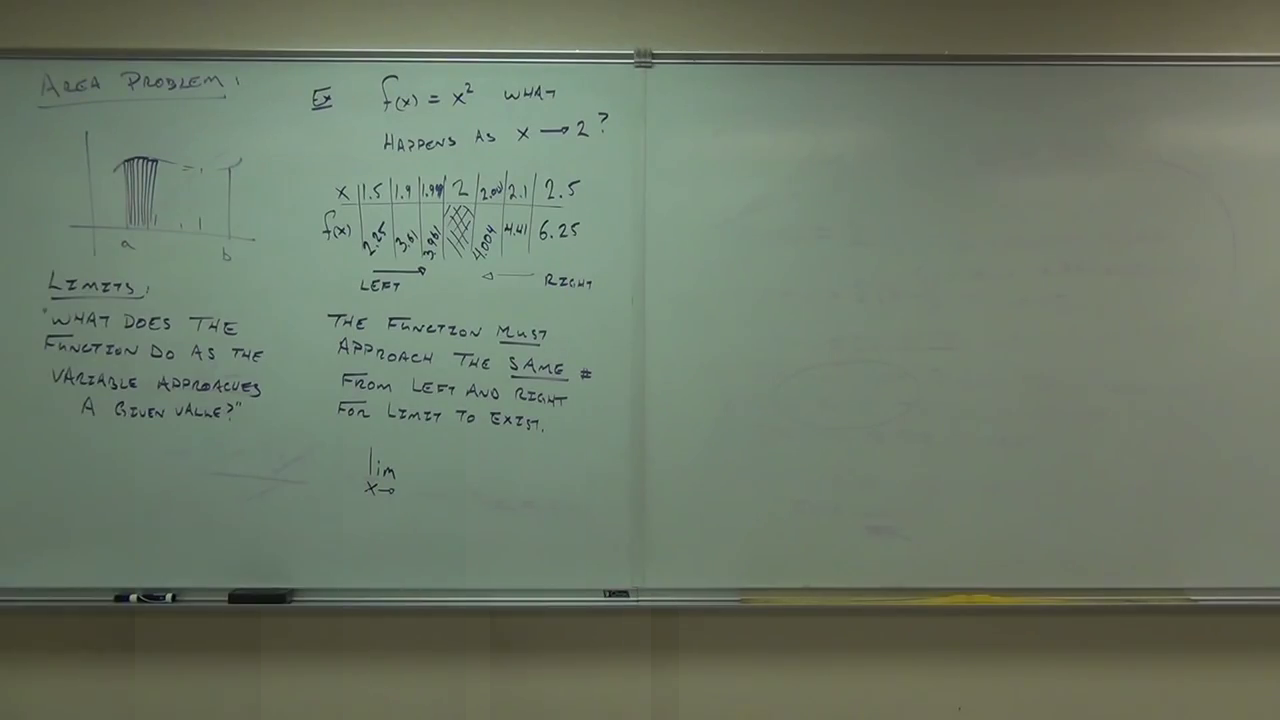 AREA PROBLEM:
a
b
LIMITS:
"WHAT DOES THE
FUNCTION DO AS THE
VARIABLE APPROACHES
A GIVEN VALUE?"
Ex f(x) = x² WHAT
HAPPENS AS x → 2 ?
x 1.5 1.9 2 2.001 2.1 2.5
f(x) 2.25 3.61 3.961 4.004 4.41 6.25
LEFT RIGHT
THE FUNCTION MUST
APPROACH THE SAME #
FROM LEFT AND RIGHT
FOR LIMIT TO EXIST.
lim
x→